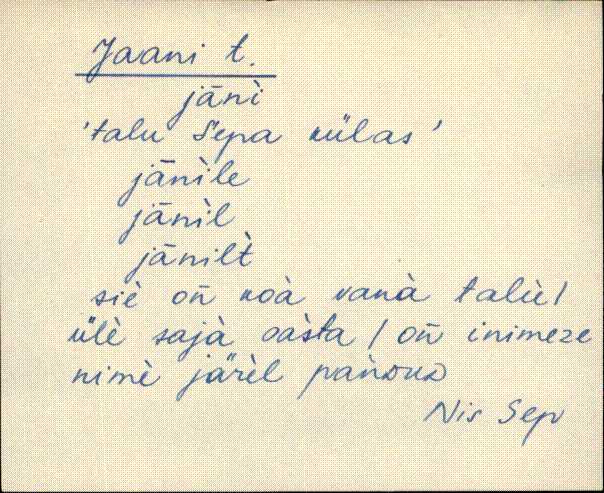 Jaani t.
jāǹi
'talu Sepa külas'
jāǹile
jāǹil
jāǹilt
siè oñ koà vanà talùl
ülè sajà oàsta / oñ inimeze
nimè järèl
Nis Sep